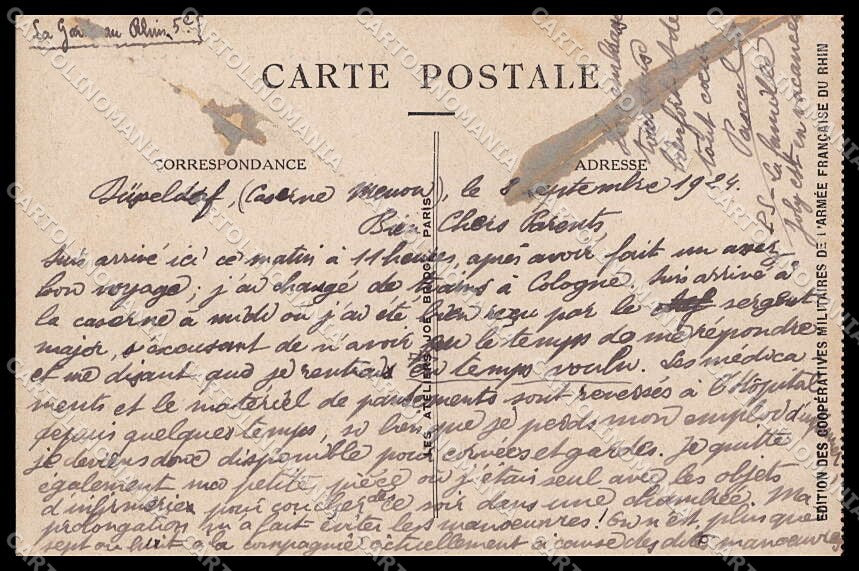 La Garde au Rhin, 5c
CARTE POSTALE
CORRESPONDANCE
ADRESSE
Düsseldorf, (Caserne Menou), le 8 septembre 1924.
Bien Chers Parents,
Suis arrivé ici ce matin à 11 heures, après avoir fait un assez
bon voyage; j'ai changé de trains à Cologne. Suis arrivé à
la caserne à midi où j'ai été bien reçu par le sergent
major, s'excusant de n'avoir eu le temps de me répondre
et me disant que je rentrais en temps voulu. Les médica-
ments et le matériel de pansements sont reversés à l'Hôpital
depuis quelques temps, si bien que je perds mon emploi d'infirmier,
je deviens donc disponible pour corvées et gardes. Je quitte
également ma petite pièce où j'étais seul avec les objets
d'infirmerie pour coucher dès ce soir dans une chambrée. Ma
prolongation m'a fait éviter les manoeuvres! On n'est plus que
sept ou huit à la compagnie actuellement à cause des dites manoeuvres
tous
bien fort de
tout coeur
Pascal
P.S- La famille
Joly est en vacances
LES ATELIERS JOE BRIDGE PARIS
EDITION DES COOPÉRATIVES MILITAIRES DE L'ARMÉE FRANÇAISE DU RHIN
CARTOLINOMANIA